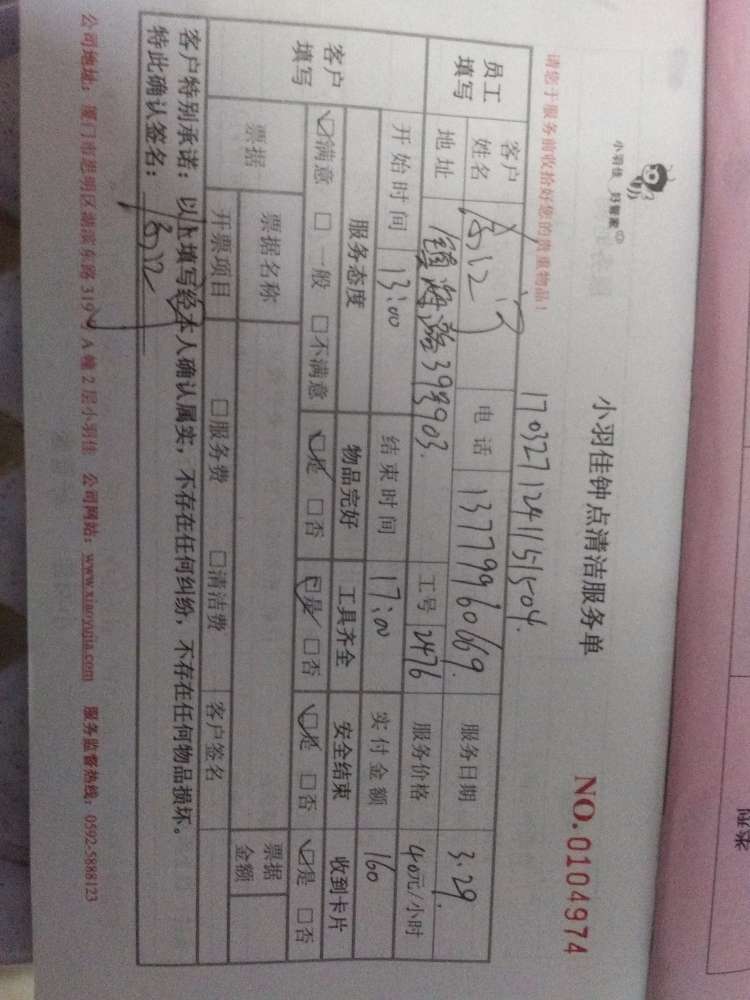 小羽佳 好管家
小羽佳钟点清洁服务单
NO.0104974
请您于服务前收拾好您的贵重物品！
1703271241151504.
员工填写
客户姓名 电话 13779960669. 服务日期 3.29.
地址 镇海路39号903. 工号 2476 服务价格 40元/小时
开始时间 13:00 结束时间 17:00 实付金额 160
客户填写
服务态度 物品完好 工具齐全 安全结束 收到卡片
☑满意 □一般 □不满意 ☑是 □否 ☑是 □否 ☑是 □否 ☑是 □否
票据 票据名称 票据金额
开票项目 □服务费 □清洁费 客户签名
客户特别承诺：以上填写经本人确认属实，不存在任何纠纷，不存在任何物品损坏。
特此确认签名：
公司地址：厦门市思明区湖滨东路319号A幢2层小羽佳 公司网站：www.xiaoyujia.com 服务监督热线：0592-5888123